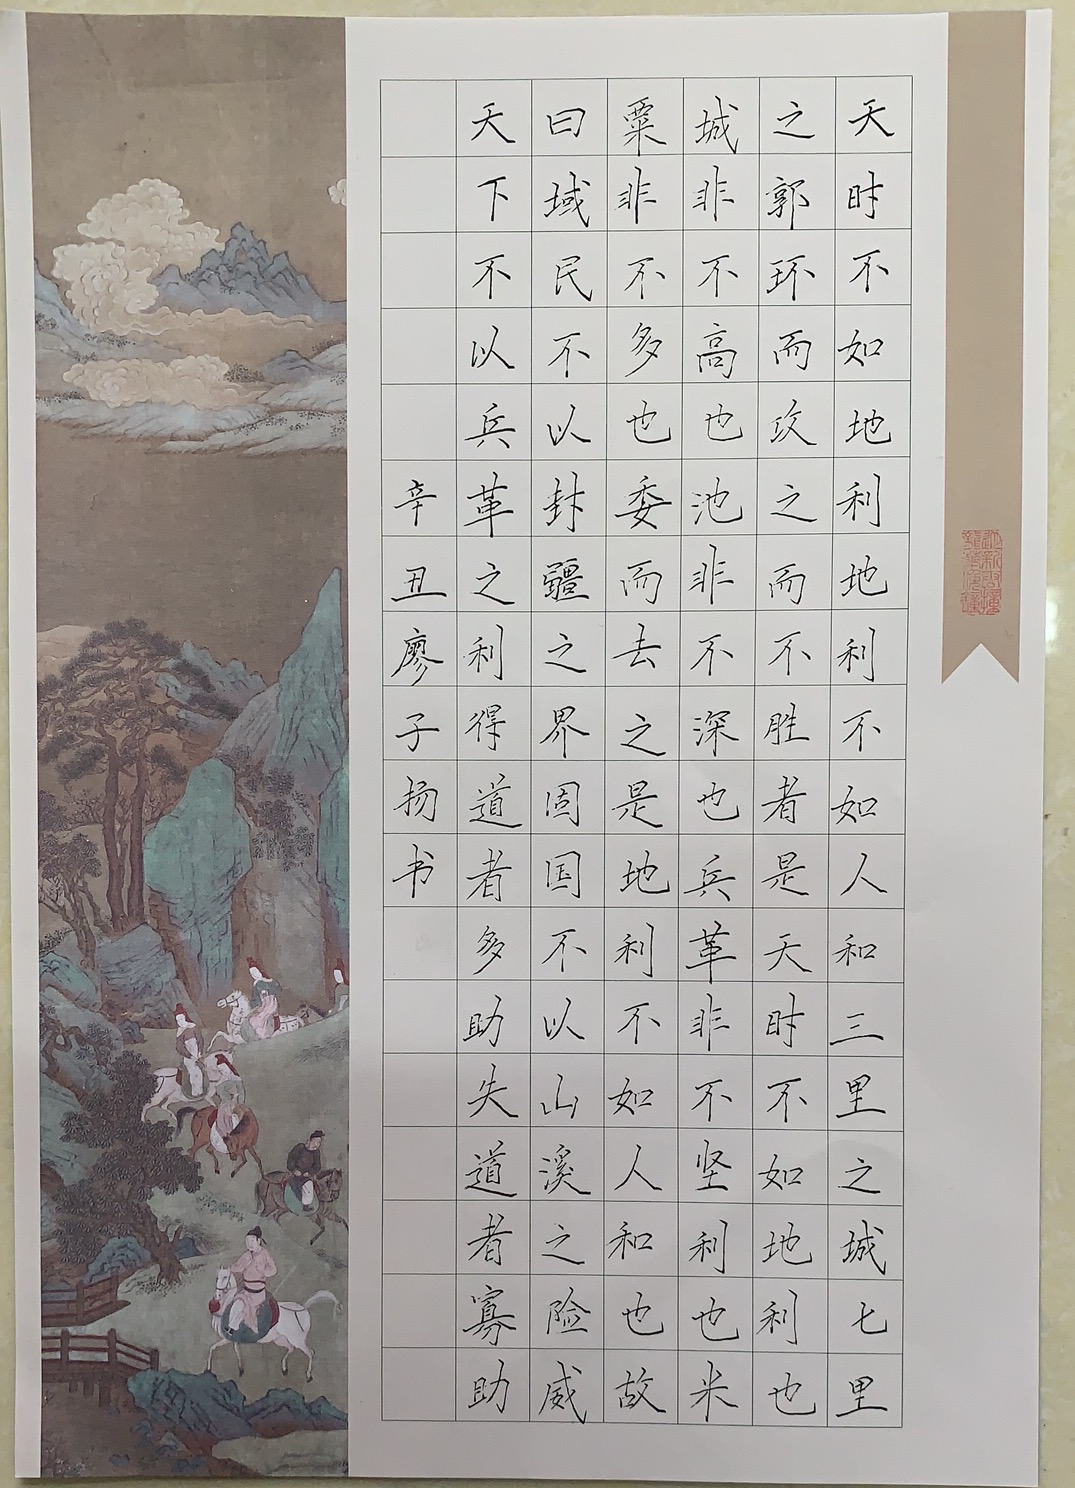 天时不如地利地利不如人和三里之城七里
之郭环而攻之而不胜者是天时不如地利也
城非不高也池非不深也兵革非不坚利也米
粟非不多也委而去之是地利不如人和也故
曰域民不以封疆之界固国不以山溪之险威
天下不以兵革之利得道者多助失道者寡助
辛丑廖子扬书